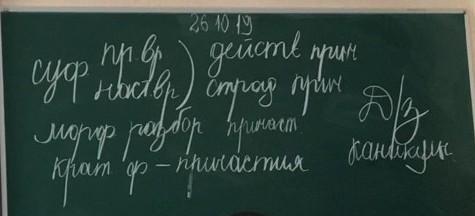 26 10 19
суф пр.вр ) действ прич
наст вр страд прич
морф разбор причаст
крат ф - причастия
Д/з
каникулы